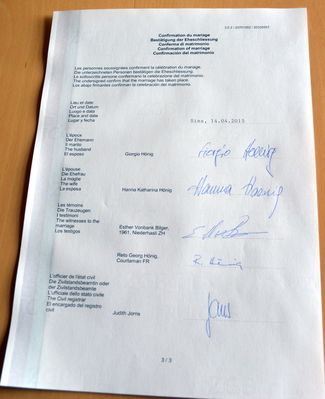 Confirmation du mariage
Bestätigung der Eheschliessung
Conferma di matrimonio
Confirmation of marriage
Confirmación del matrimonio
Les personnes soussignées confirment la célébration du mariage.
Die unterzeichneten Personen bestätigen die Eheschliessung.
Le sottoscritte persone confermano la celebrazione del matrimonio.
The undersigned confirm that the marriage has taken place.
Los abajo firmantes confirman la celebración del matrimonio.
Lieu et date
Ort und Datum
Luogo e data
Place and date
Lugar y fecha
Sins, 14.04.2015
L'époux
Der Ehemann
Il marito
The husband
El esposo
Giorgio Hönig
Giorgio Hoenig
L'épouse
Die Ehefrau
La moglie
The wife
La esposa
Hanna Katharina Hönig
Hanna Hoenig
Les témoins
Die Trauzeugen
I testimoni
The witnesses to the
marriage
Los testigos
Esther Vonbank Bilger,
1961, Niederhasli ZH
Reto Georg Hönig,
Courtaman FR
R. Hönig
L'officier de l'état civil
Die Zivilstandsbeamtin oder
der Zivilstandsbeamte
L'ufficiale dello stato civile
The Civil registrar
El encargado del registro
civil
Judith Jorns
Jorns
3 / 3